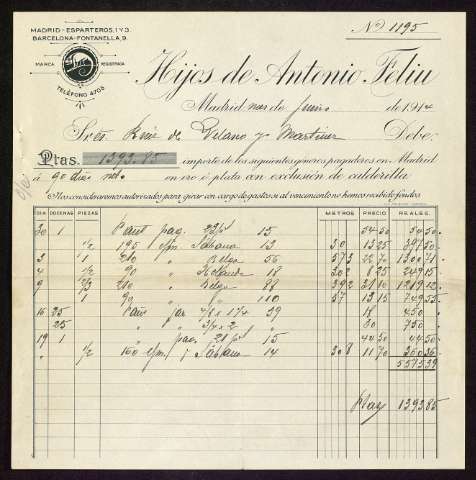 MADRID-ESPARTEROS, 1 Y 3.
BARCELONA-FONTANELLA, 9.
MARCA REGISTRADA
TELÉFONO 4703
Nº 1195
Hijos de Antonio Feliu
Madrid mes de Junio de 1914
Sres. Ruiz de Velasco y Martinez Debe:
Ptas. 1393,85 importe de los siguientes géneros pagaderos en Madrid
á 90 dias en oro ó plata con exclusión de calderilla.
Nos consideraremos autorizados para girar con cargo de gastos si al vencimiento no hemos recibido fondos
DIA DOCENAS PIEZAS METROS PRECIO REALES
30 1 pag. 15 54 50 54 50
1/2 195 c/m Sábana 13 30 13 25 397 50
3 1 210 " Belga 56 57 3 22 70 1300 71
4 1/2 90 " Holanda 18 30 2 8 25 249 15
9 2/3 210 " Belga 88 39 2 31 10 1219 12
" 1 90 " " 110 57 13 15 749 55
16 25 29 18 450
" 25 " 3/4 x 2 " 30 750
19 1 " pag. 15 44 50 44 50
" 1/2 160 c/m Sábana 14 30 8 11 70 360 36
5575 39
Ptas 1393 85